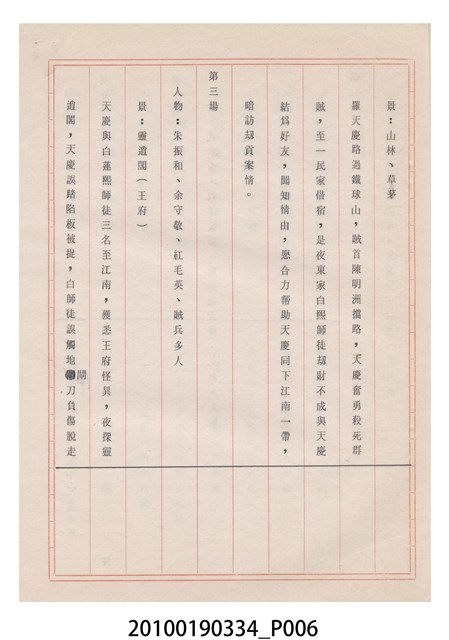 景：山林、草藔
羅天慶路過鐵球山，賊首陳明洲擋路，天慶奮勇殺死群
賊，至一民家借宿，是夜東家白熙師徒刼財不成與天慶
結爲好友，聞知情由，愿合力帮助天慶同下江南一帶，
暗訪刼貢案情。
第三場
人物：朱振和、余守敬、紅毛英、賊兵多人
景：靈逍閣（王府）
天慶與白蓮熙師徒三名至江南，獲悉王府怪異，夜探靈
逍閣，天慶誤踏陷板被捉，白師徒誤觸地閘刀負傷脫走
20100190334_P006